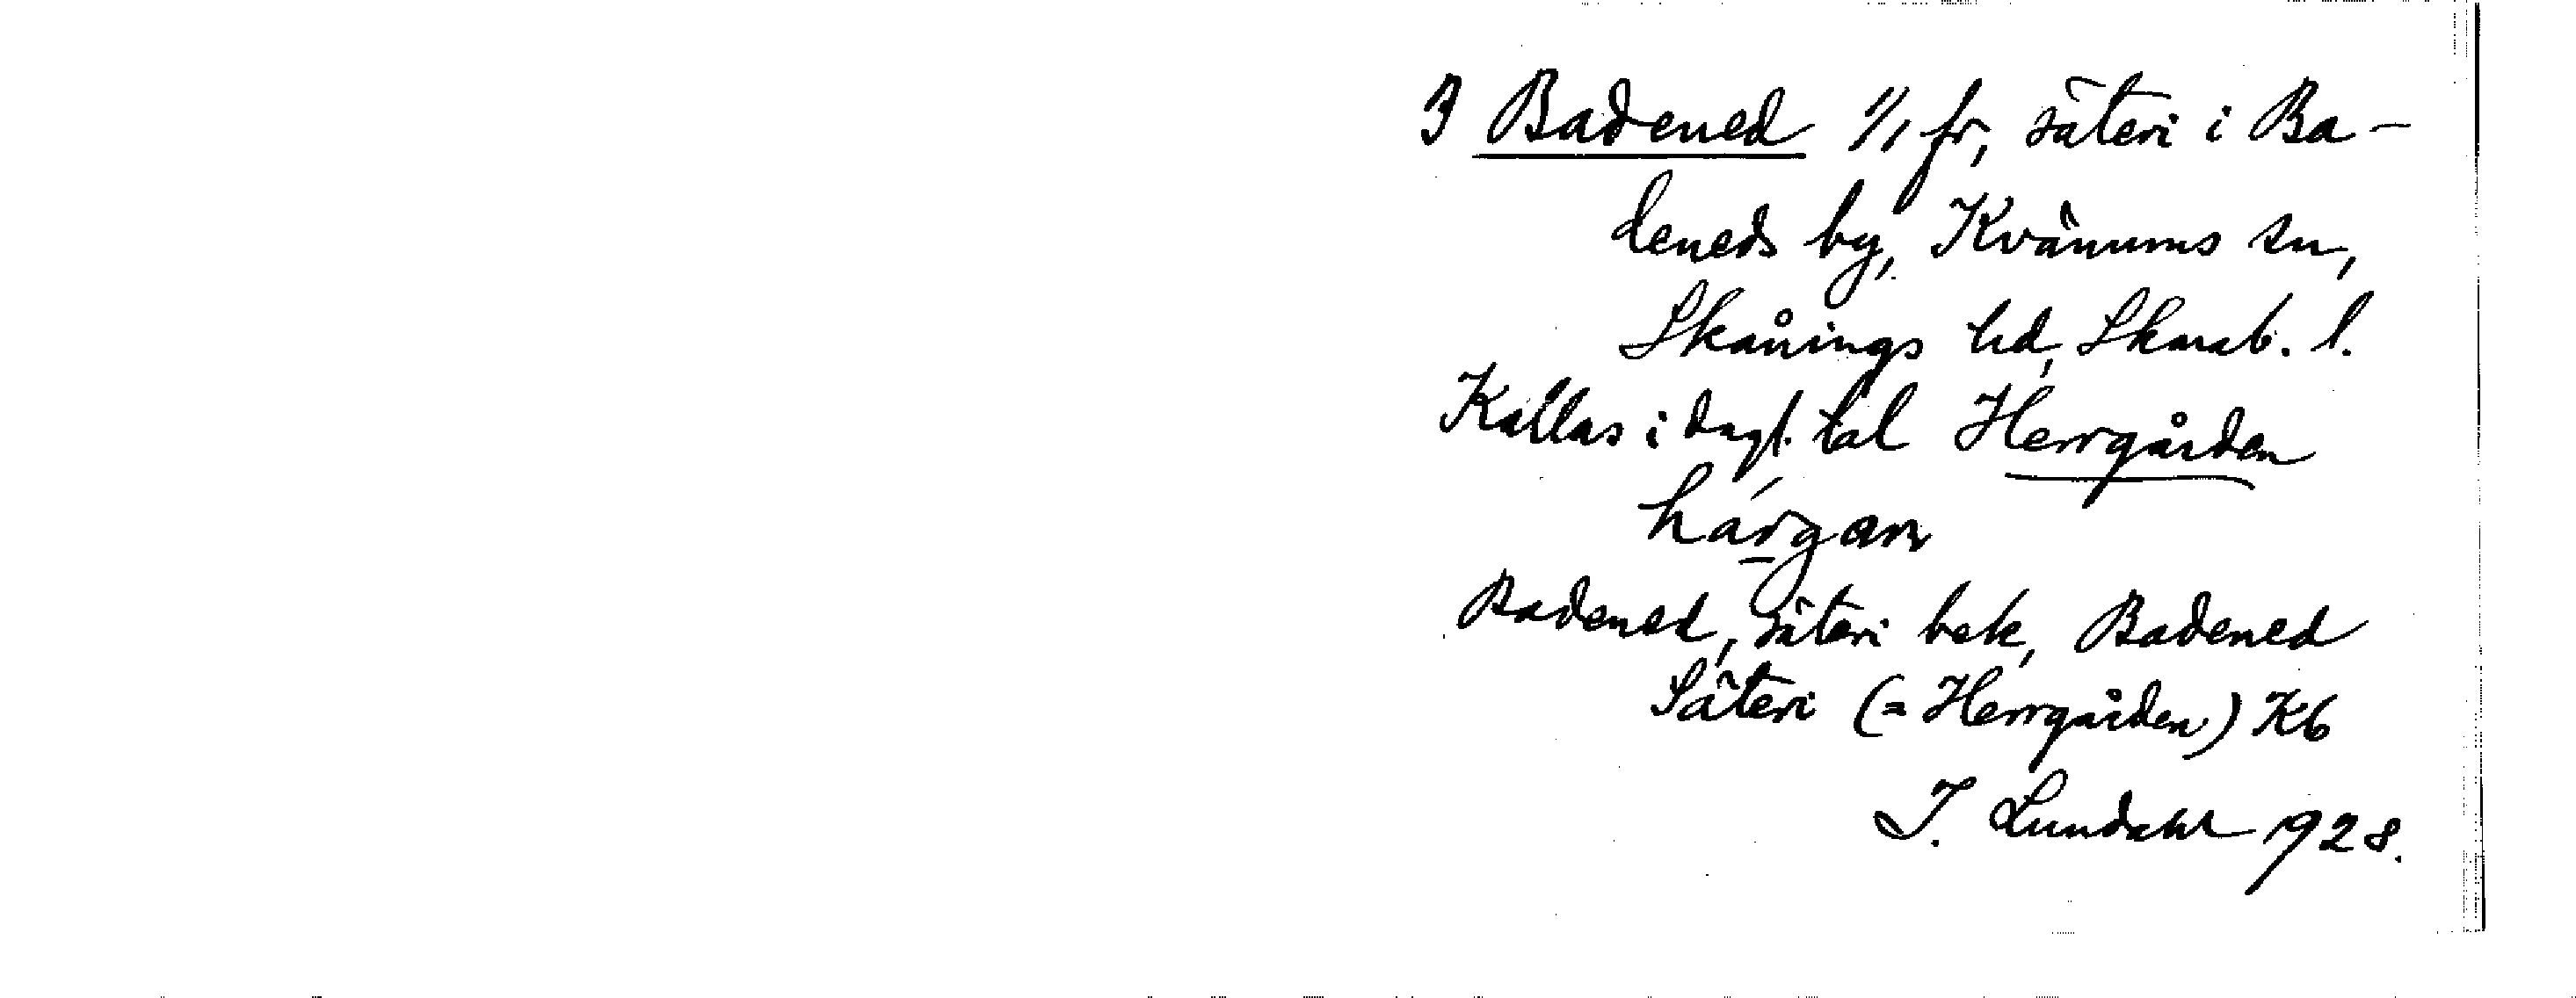 3 Badened 1/1 fr, säteri i Ba-
deneds by, Kvänums sn,
Skånings hd, Skarab. l.
Kallas i dagl. tal Herrgården
hárgan
Badened, säteri bek, Badened
Säteri (= Herrgården) Kb
I. Lundahl 1928.